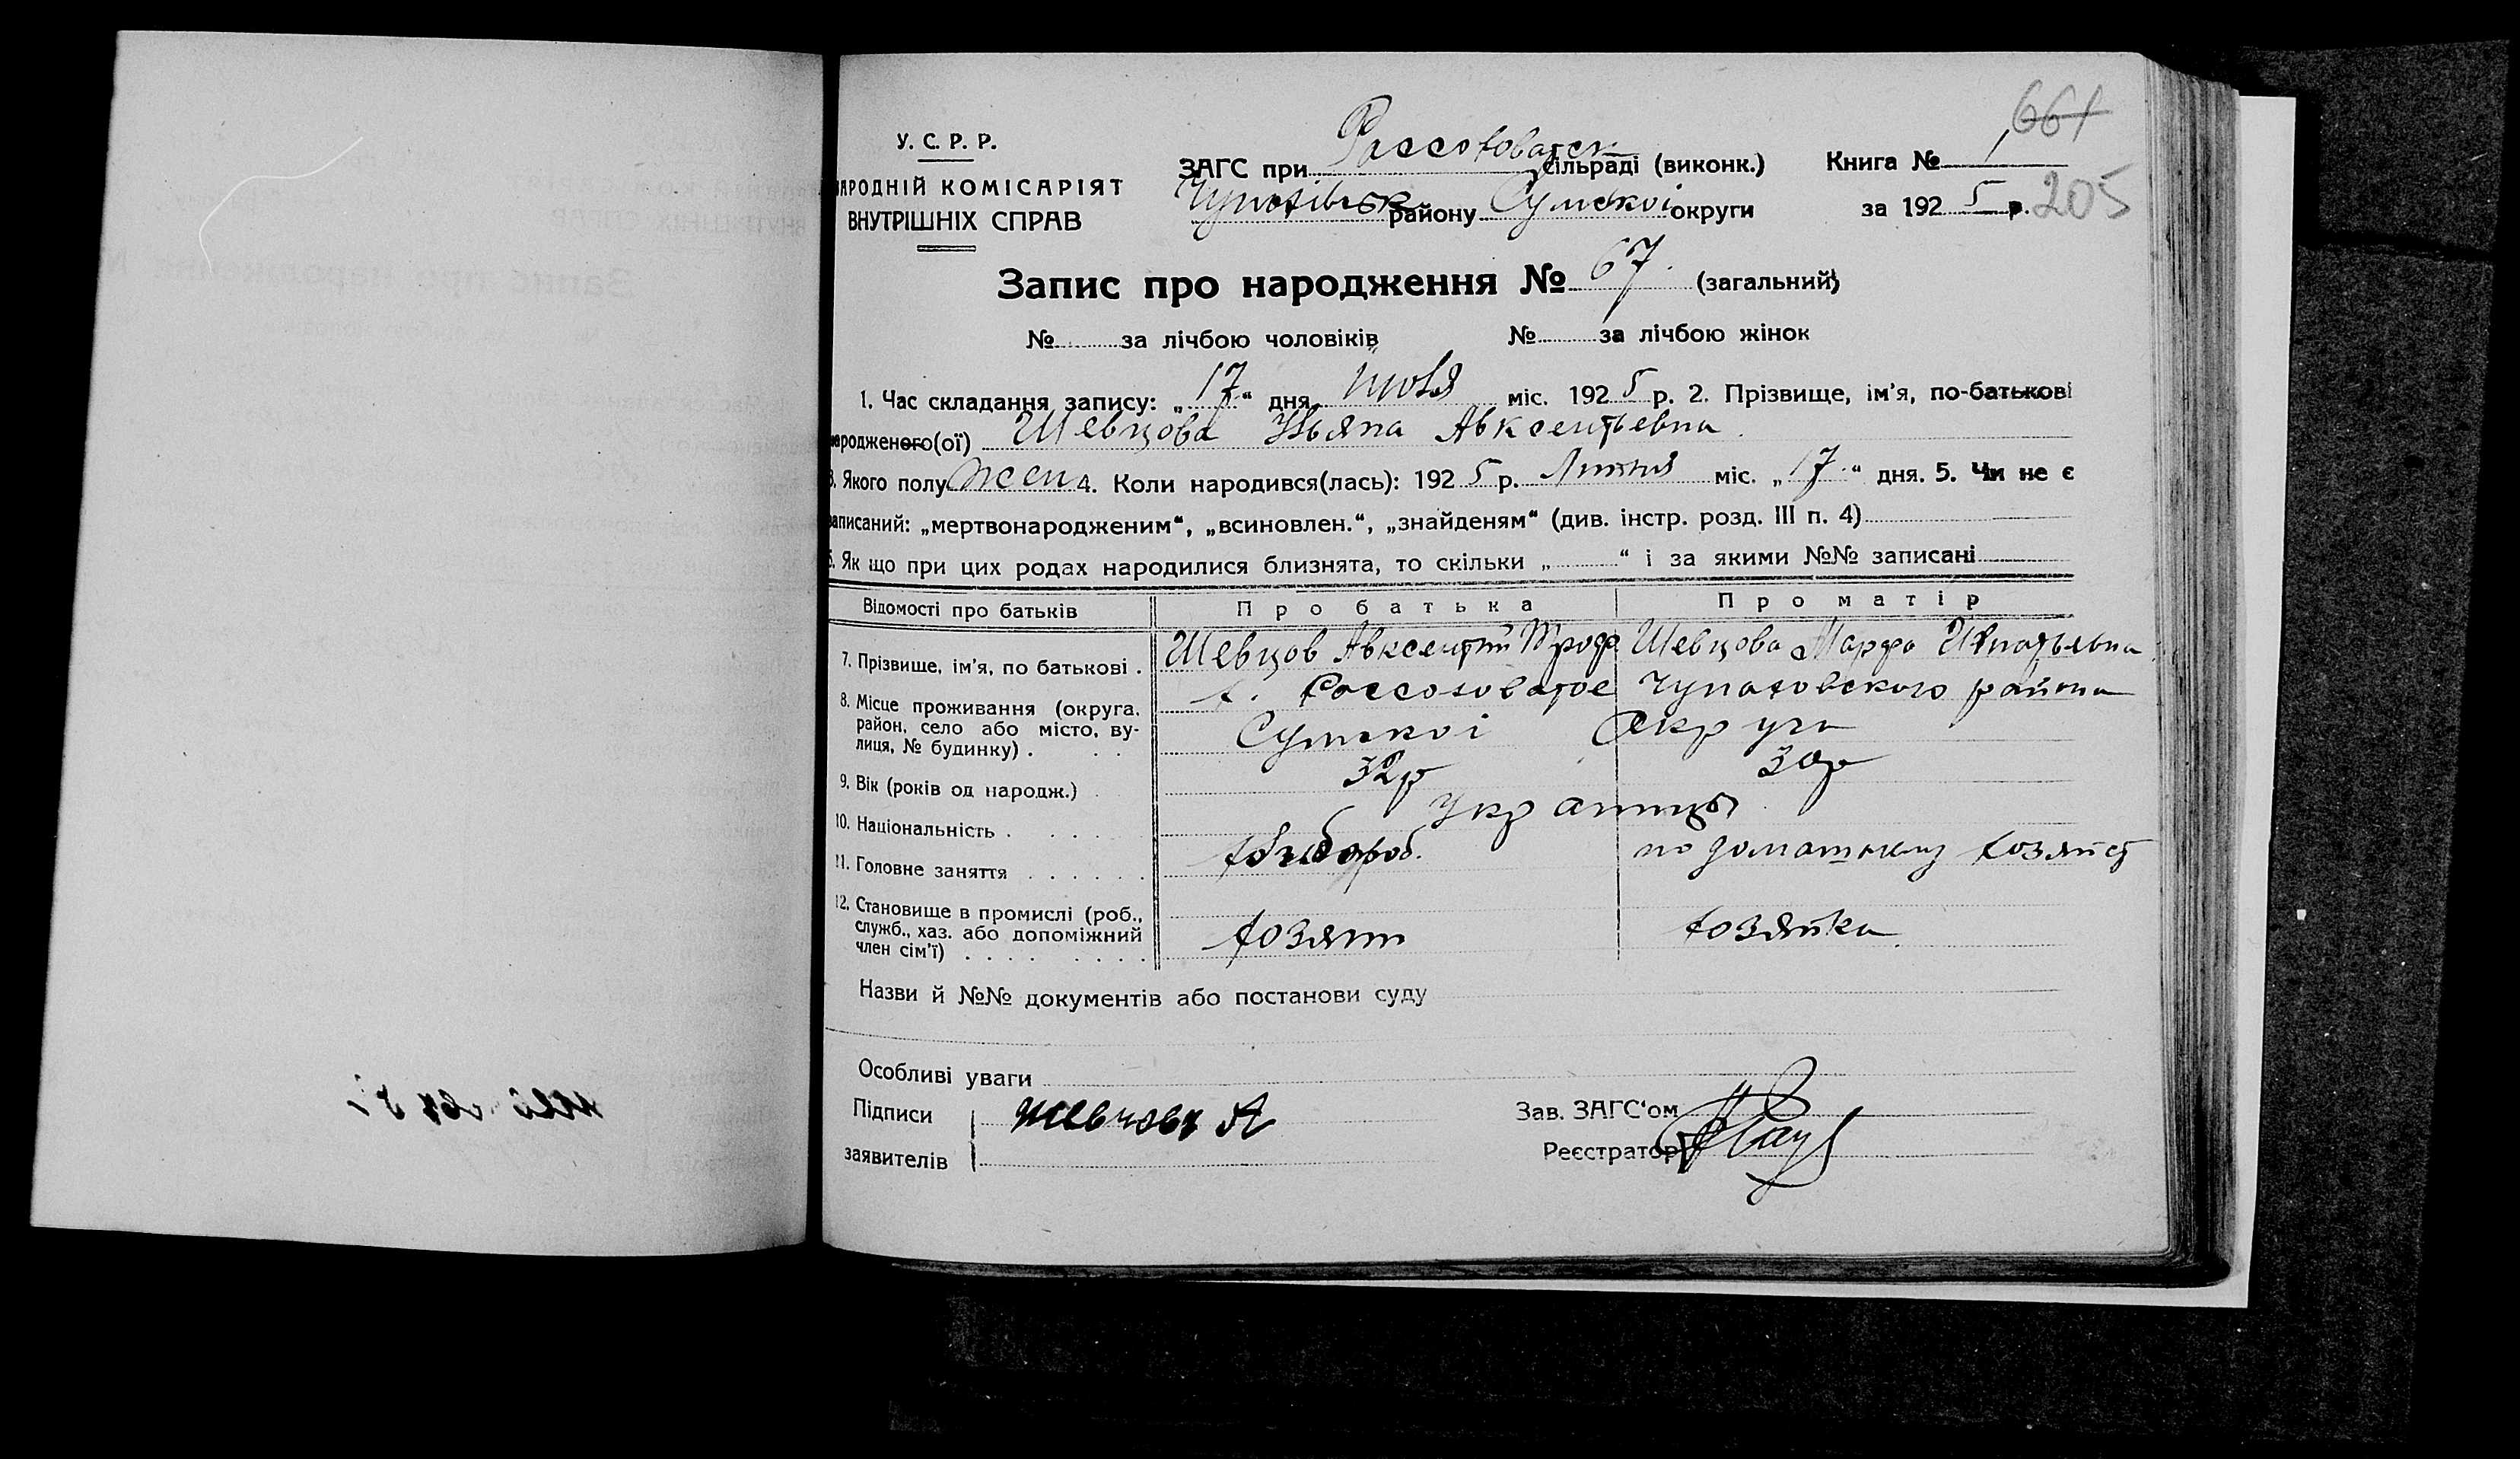 661
У. С. Р. Р.
ЗАГС при Россоховатск сільраді (виконк.) Книга № 1
НАРОДНІЙ КОМІСАРІЯТ
ВНУТРІШНІХ СПРАВ
району Сумскоі округи за 1925 р. 205
Запис про народження № 67. (загальний)
№ за лічбою чоловіків № за лічбою жінок
1. Час складання запису: „17“ дня Июля міс. 1925 р. 2. Прізвище, ім'я, по-батькові
народженого(ої) Шевцова Ульяна Авксентьевна
3. Якого полу жен 4. Коли народився(лась): 1925 р. міс. „17“ дня. 5. Чи не є
записаний: „мертвонародженим“, „всиновлен.“, „знайденям“ (див. інстр. розд. III п. 4)
6. Як що при цих родах народилися близнята, то скільки „ “ і за якими №№ записані
Відомості про батьків Про батька Про матір
7. Прізвище, ім'я, по батькові . Шевцов Авксентий Троф Шевцова Марфа Игнатьевна
8. Місце проживання (округа, район, село або місто, вулиця, № будинку) . х. Россоховатое Чупаховского района
Сумскоі Округи
9. Вік (років од народж.) 32р 30р
10. Національність . Украинцы
11. Головне заняття хлибороб. по домашнему хозяйст
12. Становище в промислі (роб., служб., хаз. або допоміжний член сім'ї) хозяин хозяйка
Назви й №№ документів або постанови суду
Особливі уваги
Підписи Шевцовъ А Зав. ЗАГС'ом
заявителів Реєстратор